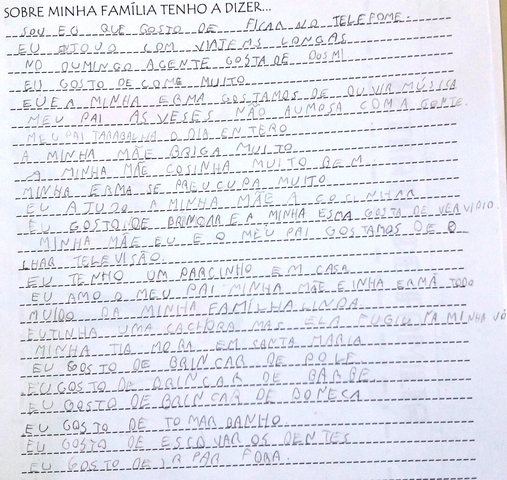 SOBRE MINHA FAMÍLIA TENHO A DIZER...
SOU EU QUE GOSTO DE FICAR NO TELEFOME.
EU COM VIAJEMS LONGAS
NO DUMINGO AGENTE GOSTA DE DOSMI
EU GOSTO DE COME MUITO
EU E A MINHA ERMA GOSTAMOS DE OUVIR MÚSICA
MEU PAI ÀS VESES NÃO AUMOSA COM A GENTE.
MEU PAI TARABALHA O DIA ENTERO
A MINHA MÃE BRIGA MUITO
A MINHA MÃE COSINHA MUITO BEM
MINHA ERMA SE PREUCUPA MUITO
EU AJUDO A MINHA MÃE A COSINHAR
EU GOSTO DE BRINCAR E A MINHA ESMA GOSTA DE VER VIDIO
MINHA MÃE EU E O MEU PAI GOSTAMOS DE O
LHAR TELEVISÃO.
EU TENHO UM PARCINHO EM CASA
EU AMO O MEU PAI MINHA MÃE E INHA ERMÃ TODO
MUIDO DA MINHA FAMILHA LINDA
EU TINHA UMA CACHORA MAS ELA FUGIU PA MINHA VÓ
MINHA TIA MORA EM SANTA MARIA
EU GOSTO DE BRINCAR DE POLE
EU GOSTO DE BRINCAR DE BARBE
EU GOSTO DE BRINCAR DE BONECA
EU GOSTO DE TOMAR BANHO
EU GOSTO DE ESCOVAR OS DENTES
EU GOSTO DE IR PAR FORA.